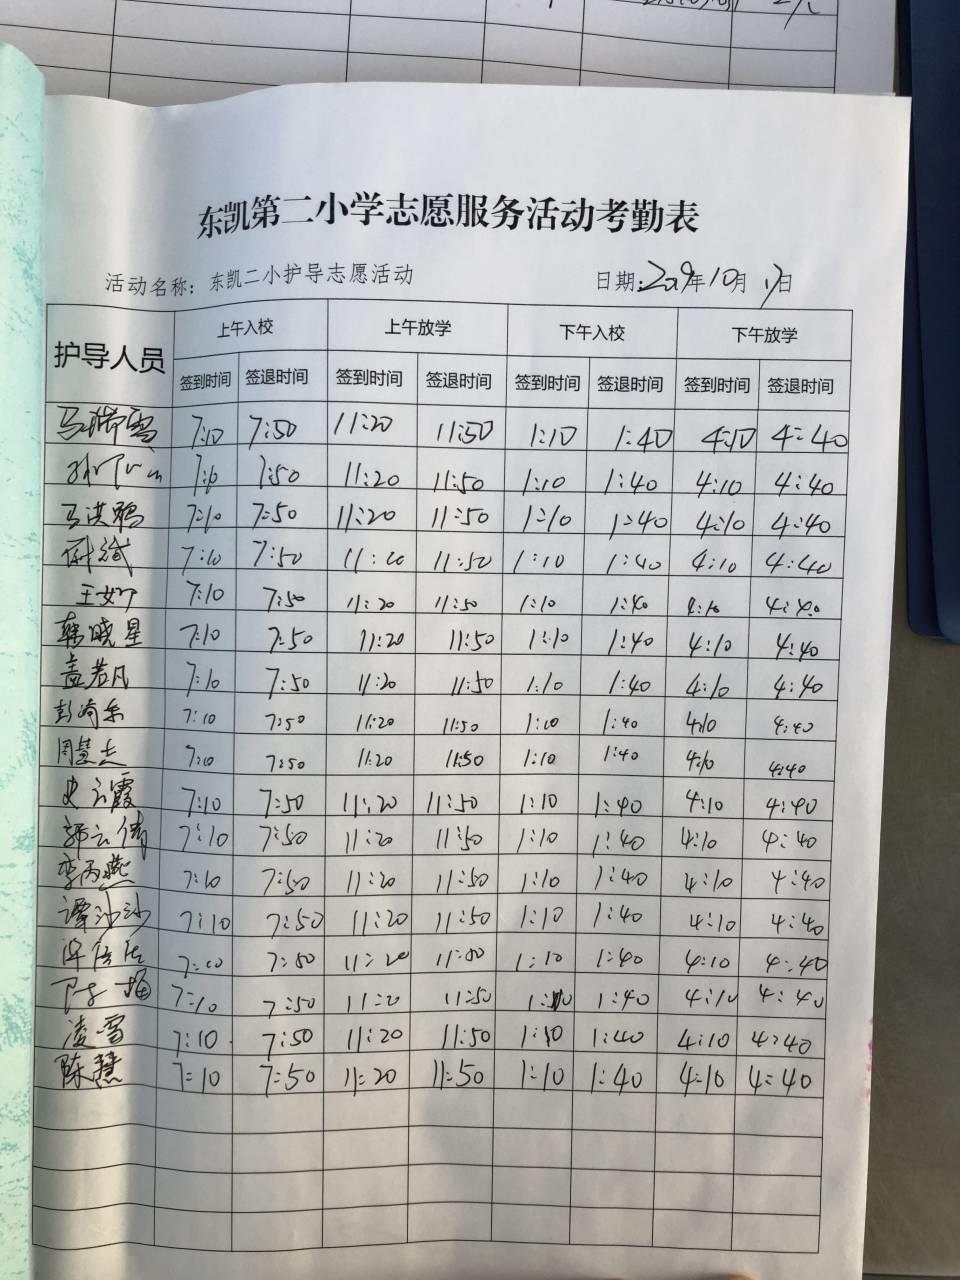 东凯第二小学志愿服务活动考勤表
活动名称：东凯二小护导志愿活动 日期：2019年10月17日
护导人员 上午入校 上午放学 下午入校 下午放学
签到时间 签退时间 签到时间 签退时间 签到时间 签退时间 签到时间 签退时间
马瑞雪 7:10 7:50 11:20 11:50 1:10 1:40 4:10 4:40
1:50 11:20 11:50 1:10 1:40 4:10 4:40
马洪鸭 7:10 7:50 11:20 11:50 1:10 1:40 4:10 4:40
7:10 7:50 11:20 11:50 1:10 1:40 4:10 4:40
王如 7:10 7:50 11:20 11:50 1:10 1:40 4:10 4:40
韩晓星 7:10 7:50 11:20 11:50 1:10 1:40 4:10 4:40
盖若凡 7:10 7:50 11:20 11:50 1:10 1:40 4:10 4:40
彭琦乐 7:10 7:50 11:20 11:50 1:10 1:40 4:10 4:40
周慧志 7:10 7:50 11:20 11:50 1:10 1:40 4:10 4:40
史云霞 7:10 7:50 11:20 11:50 1:10 1:40 4:10 4:40
郭云倩 7:10 7:50 11:20 11:50 1:10 1:40 4:10 4:40
李丙燕 7:10 7:50 11:20 11:50 1:10 1:40 4:10 4:40
谭沙沙 7:10 7:50 11:20 11:50 1:10 1:40 4:10 4:40
7:10 7:50 11:20 11:50 1:10 1:40 4:10 4:40
陈梅 7:10 7:50 11:20 11:50 1:10 1:40 4:10 4:40
凌雪 7:10 7:50 11:20 11:50 1:10 1:40 4:10 4:40
陈慧 7:10 7:50 11:20 11:50 1:10 1:40 4:10 4:40